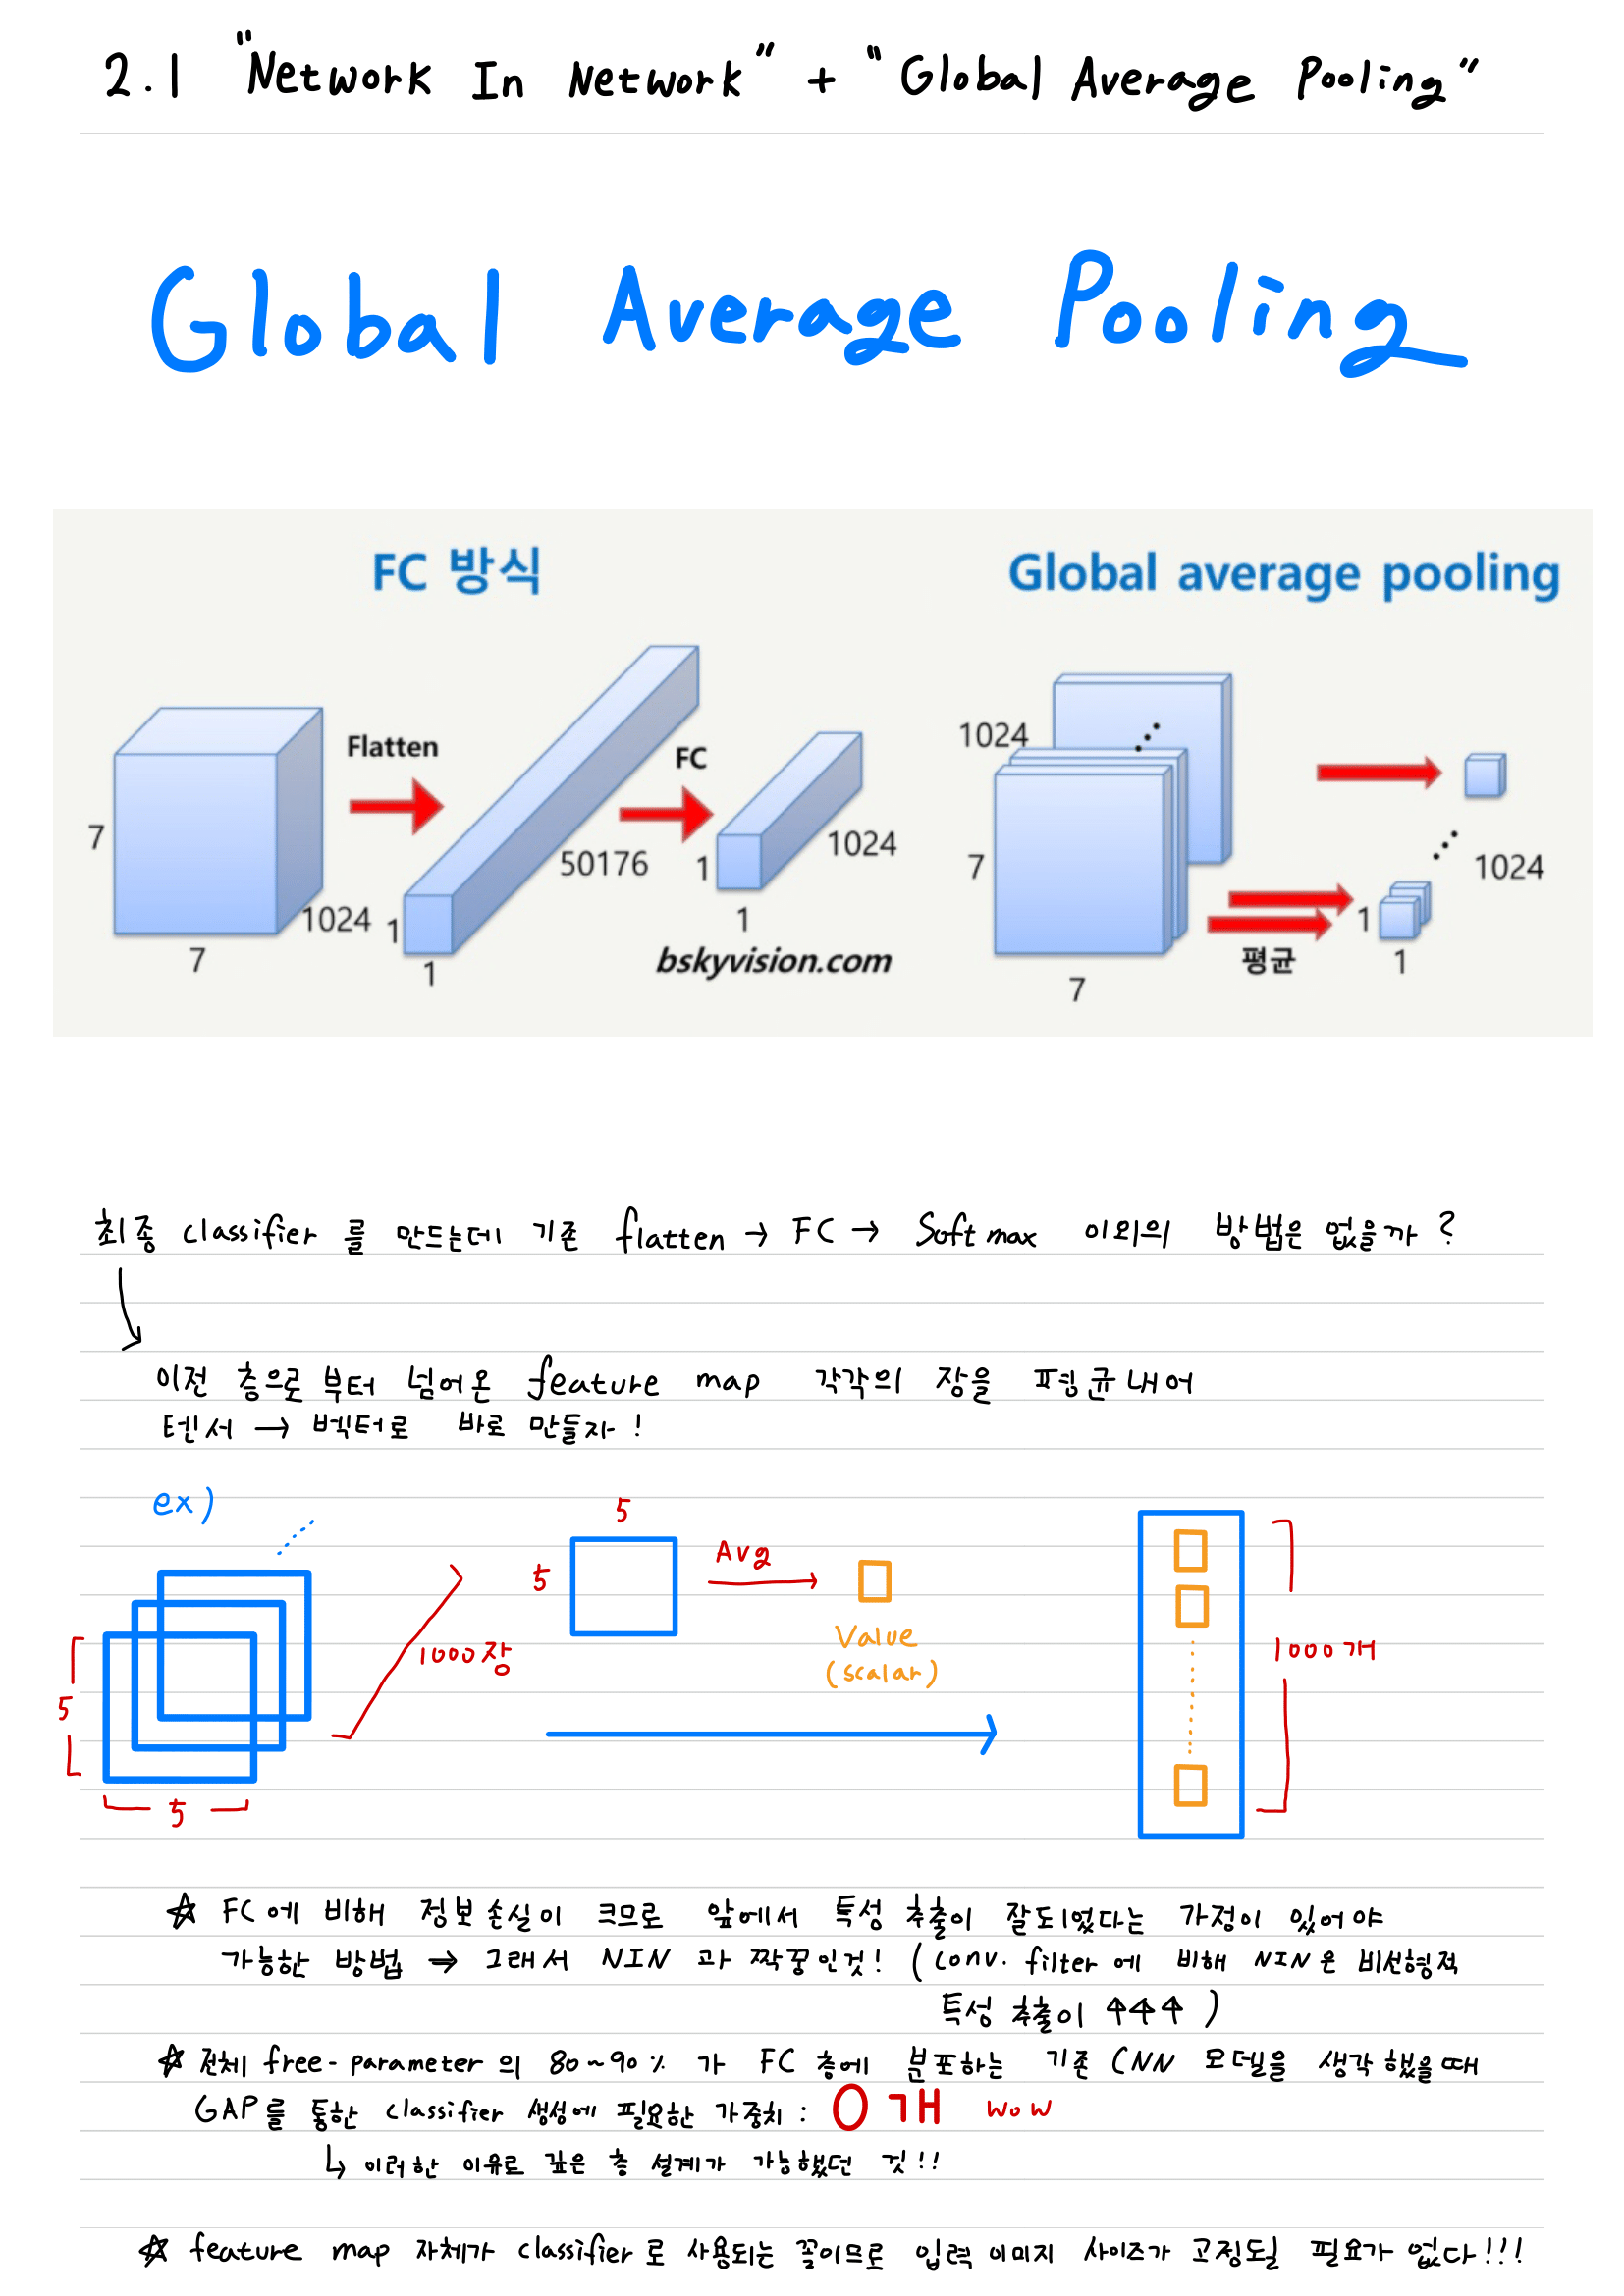 2.1 "Network In Network" + "Global Average Pooling"
Global Average Pooling
FC 방식
Global average pooling
Flatten
FC
7
7
1024
1
1
50176
1
1
1024
bskyvision.com
1024
7
7
평균
1
1
1024
최종 classifier 를 만드는데 기존 flatten → FC → Softmax 이외의 방법은 없을까?
이전 층으로 부터 넘어온 feature map 각각의 장을 평균내어
텐서 → 벡터로 바로 만들자!
ex)
5
5
1000장
5
5
Avg
Value
(scalar)
1000개
☆ FC에 비해 정보손실이 크므로 앞에서 특성 추출이 잘되었다는 가정이 있어야
가능한 방법 → 그래서 NIN 과 짝꿍인것! (conv. filter에 비해 NIN은 비선형적
특성 추출이 ↑↑↑)
☆ 전체 free-parameter의 80~90% 가 FC 층에 분포하는 기존 CNN 모델을 생각했을때
GAP를 통한 classifier 생성에 필요한 가중치: 0개 wow
↳ 이러한 이유로 깊은 층 설계가 가능했던 것!!
☆ feature map 자체가 classifier로 사용되는 꼴이므로 입력 이미지 사이즈가 고정될 필요가 없다!!!